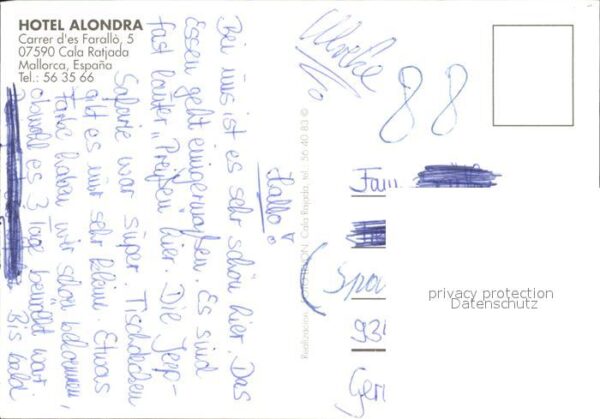 HOTEL ALONDRA
Carrer d'es Farallò, 5
07590 Cala Ratjada
Mallorca, España
Tel.: 56 35 66
Hallo!
Bei uns ist es sehr schön hier. Das
Essen geht einigermaßen. Es sind
fast lauter "Preißen" hier. Die Jeep-
Safarie war super. Tischdecken
gibt es nur sehr kleine. Etwas
Farbe haben wir schon bekommen,
obwohl es 3 Tage bewölkt war.
Bis bald
88
Fam.
privacy protection
Datenschutz
Cala Rajada, tel.: 56 40 83 ©